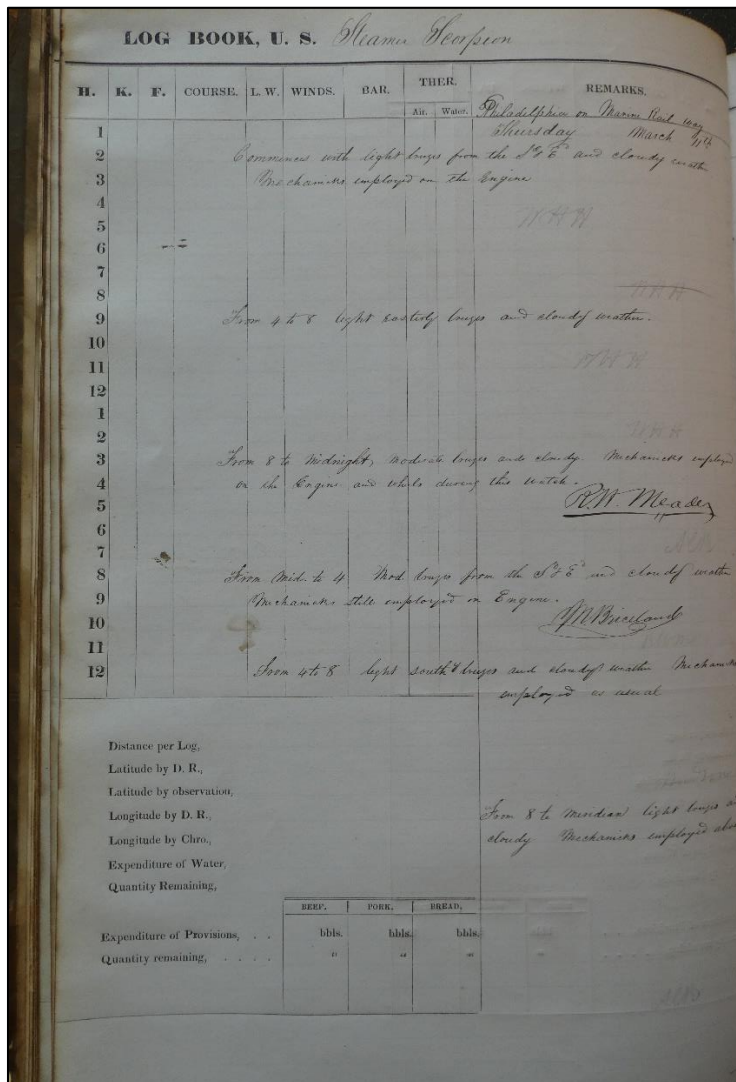 LOG BOOK, U. S. Steamer Scorpion
H. K. F. COURSE. L. W. WINDS. BAR. THER. REMARKS.
Air. Water.
Philadelphia on Marine Rail way
Thursday March 11th
1
2
3
4
5
6
7
8
9
10
11
12
1
2
3
4
5
6
7
8
9
10
11
12
Commences with light breezes from the Sd & Ed and cloudy weather
Mechanicks employed on the Engine
From 4 to 8 light Easterly breezes and cloudy weather.
From 8 to Midnight, moderate breezes and cloudy. Mechanicks employed
on the Engine and whels during this watch.
R.W. Meade
From Mid. to 4 Mod breezes from the Sd & Ed and cloudy weather
Mechanicks still employed on Engine.
From 4 to 8 light south'd breezes and cloudy weather
employed as usual
Distance per Log,
Latitude by D. R.,
Latitude by observation,
Longitude by D. R.,
Longitude by Chro.,
Expenditure of Water,
Quantity Remaining,
From 8 to Meridian light breezes
cloudy Mechanicks employed
BEEF. PORK. BREAD.
Expenditure of Provisions, . . bbls. bbls. bbls.
Quantity remaining, . . . . " " "